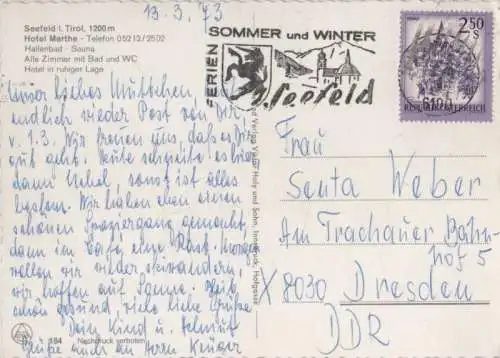 13.3.73
Seefeld i. Tirol, 1200 m
Hotel Marthe - Telefon 05212/2502
Hallenbad - Sauna
Alle Zimmer mit Bad und WC
Hotel in ruhiger Lage
Unser liebes Muttchen,
endlich wieder Post von Dir
v. 1.3. Wir freuen uns, daß es Dir
gut geht. Heute schneite es hier
dann Nebel, sonst ist alles
bestens. Wir haben einen
schönen Spaziergang gemacht,
dann im Café, eine Rast. Morgen
wollen wir wieder skiwandern,
wir hoffen auf Sonne. Bleib
schön gesund, viele liebe Grüße
Dein Kind u. Helmut
Grüße auch an Herrn Krüger
184 Nachdruck verboten
Innsbruck, Hofgasse
FERIEN
SOMMER und WINTER
Seefeld
2.50
S
REPUBLIK ÖSTERREICH
6100
Frau
Senta Weber
Am Trachauer Bahn-
hof 5
X 8030 Dresden
DDR